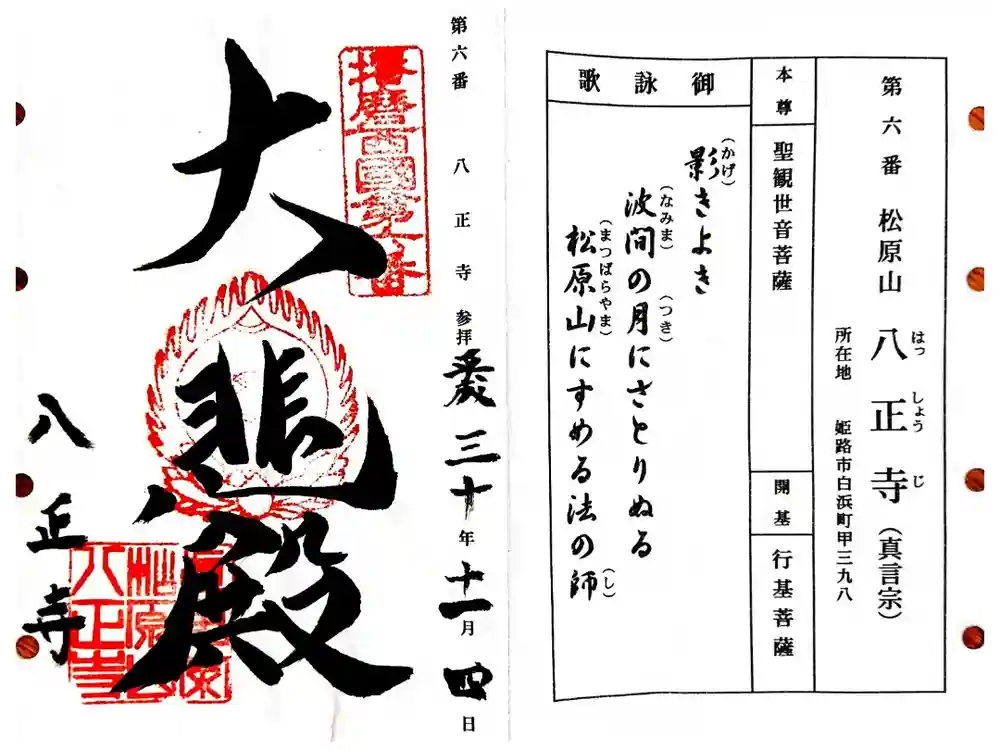 第六番 松原山 八正寺（真言宗）
はっしょうじ
所在地 姫路市白浜町甲三九八
本尊
聖観世音菩薩
開基
行基菩薩
御詠歌
影きよき
（かげ）
波間の月にさとりぬる
（なみま）（つき）
松原山にすめる法の師
（まつばらやま）（し）
第六番 八正寺 参拝 平成三十年十一月四日
播磨西國第六番
大悲殿
八正寺
松原山
八正寺